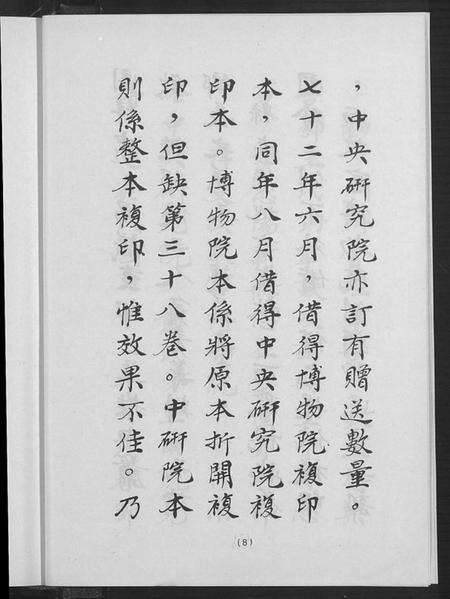 ，中央研究院亦訂有贈送數量。
七十二年六月，借得博物院複印
本，同年八月借得中央研究院複
印本。博物院本係將原本折開複
印，但缺第三十八卷。中研院本
則係整本複印，惟效果不佳。乃
(8)